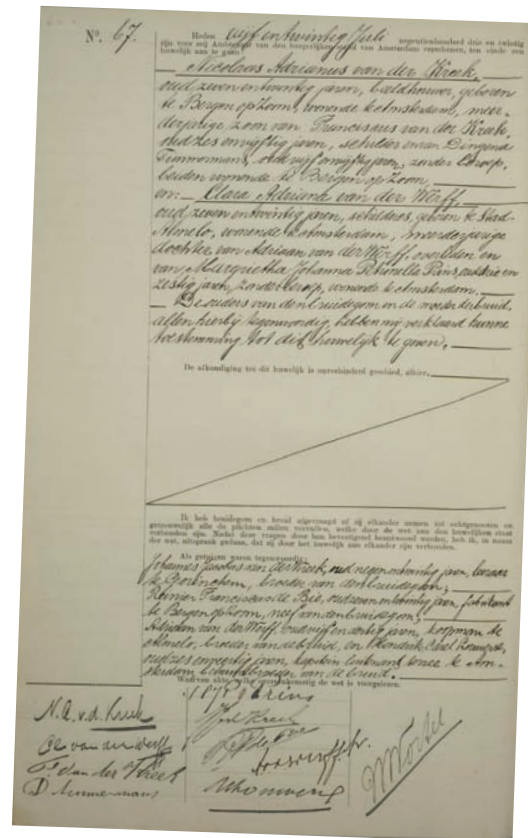 Nº. 67.
Heden vijf en twintig Juli negentienhonderd drie en twintig
zijn voor mij Ambtenaar van den burgerlijken stand van Amsterdam verschenen, ten einde een
huwelijk aan te gaan:
Nicolaas Adrianus van der Kreek,
oud zeven en twintig jaren, beeldhouwer, geboren
te Bergen op Zoom, wonende te Amsterdam, meer-
derjarige zoon van Franciscus van der Kreek,
oud zes en vijftig jaren, schilder en van Dingena
Timmermans, oud vijf en vijftig jaren, zonder beroep,
beiden wonende te Bergen op Zoom,
en: Clara Adriana van der Werff,
oud zeven en twintig jaren, schilderes, geboren te Stad-
Almelo, wonende te Amsterdam, meerderjarige
dochter van Adriaan van der Werff, overleden en
van Margaretha Johanna Petronella Prins, oud en
zestig jaren, zonder beroep, wonende te Amsterdam.
De ouders van den bruidegom en de moeder der bruid,
allen hierbij tegenwoordig, hebben mij verklaard hunne
toestemming tot dit huwelijk te geven.
De afkondiging tot dit huwelijk is onverhinderd geschied, alhier.
Ik heb bruidegom en bruid afgevraagd of zij elkander nemen tot echtgenooten en
getrouwelijk alle de plichten zullen vervullen, welke door de wet aan den huwelijken staat
verbonden zijn. Nadat deze vragen door hen bevestigend beantwoord werden, heb ik, in naam
der wet, uitspraak gedaan, dat zij door het huwelijk aan elkander zijn verbonden.
Als getuigen waren tegenwoordig:
Johannes Jacobus van der Kreek, oud negen en twintig jaren, leeraar
te Gorinchem, broeder van den bruidegom,
Reinier Franciscus de Bie, oud zeven en twintig jaren, fabrikant
te Bergen op Zoom, neef van den bruidegom,
Adriaan van der Werff, oud vijf en dertig jaren, koopman te
Almelo, broeder van de bruid, en Hendrik Carel
oud zes en veertig jaren, kapitein luitenant ter zee te Am-
sterdam, behuwdbroeder van de bruid.
Waarvan akte, welke overeenkomstig de wet is voorgelezen.
N.A. v.d. Kreek
van der Werff
F. van der Kreek
D Timmermans
Prins
Kreek